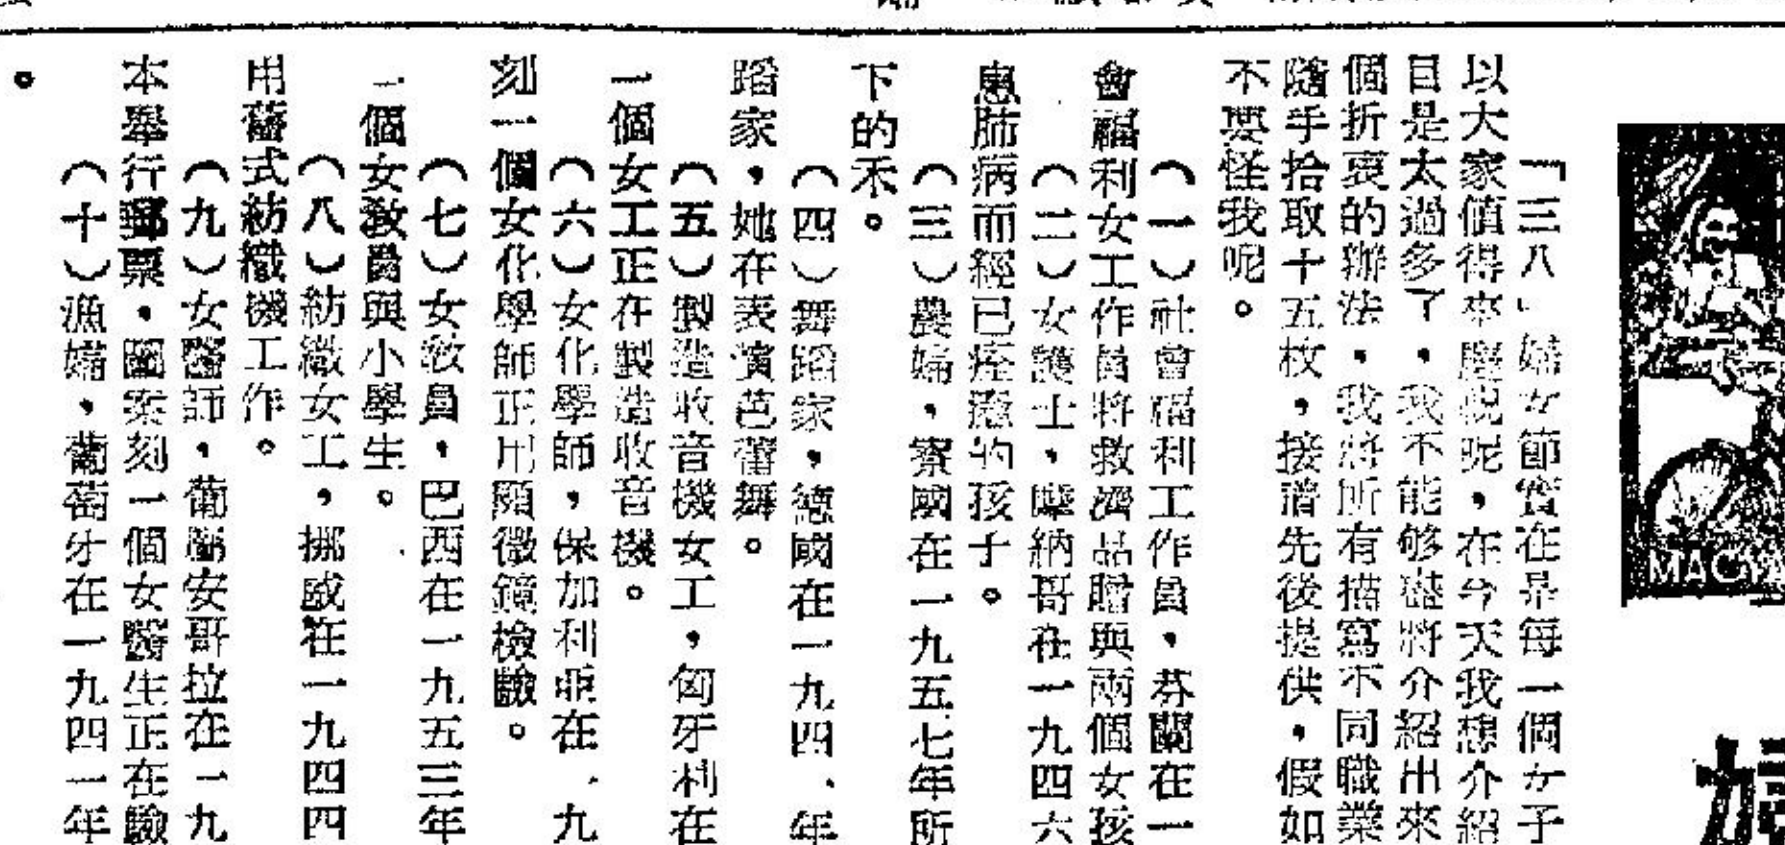 「三八」婦女節實在是每一個女子
以大家值得來慶祝呢，在今天我想介紹
目是太過多了，我不能够儘將介紹出來
個折衷的辦法，我將所有描寫不同職業
隨手拾取十五枚，接着先後提供，假如
不要怪我呢。
（一）社會福利工作員，芬蘭在一
會福利女工作員將救濟品贈與兩個女孩
（二）女護士，摩納哥在一九四六
患肺病而經已痊癒的孩子。
（三）農婦，寮國在一九五七年所
下的禾。
（四）舞蹈家，德國在一九四一年
蹈家，她在表演芭蕾舞。
（五）製造收音機女工，匈牙利在
一個女工正在製造收音機。
（六）女化學師，保加利亞在一九
刻一個女化學師正用顯微鏡檢驗。
（七）女敎員，巴西在一九五三年
一個女敎員與小學生。
（八）紡織女工，挪威在一九四四
用舊式紡織機工作。
（九）女醫師，葡屬安哥拉在一九
本舉行郵票，圖案刻一個女醫生正在驗
（十）漁婦，葡萄牙在一九四一年
。
MAGYA